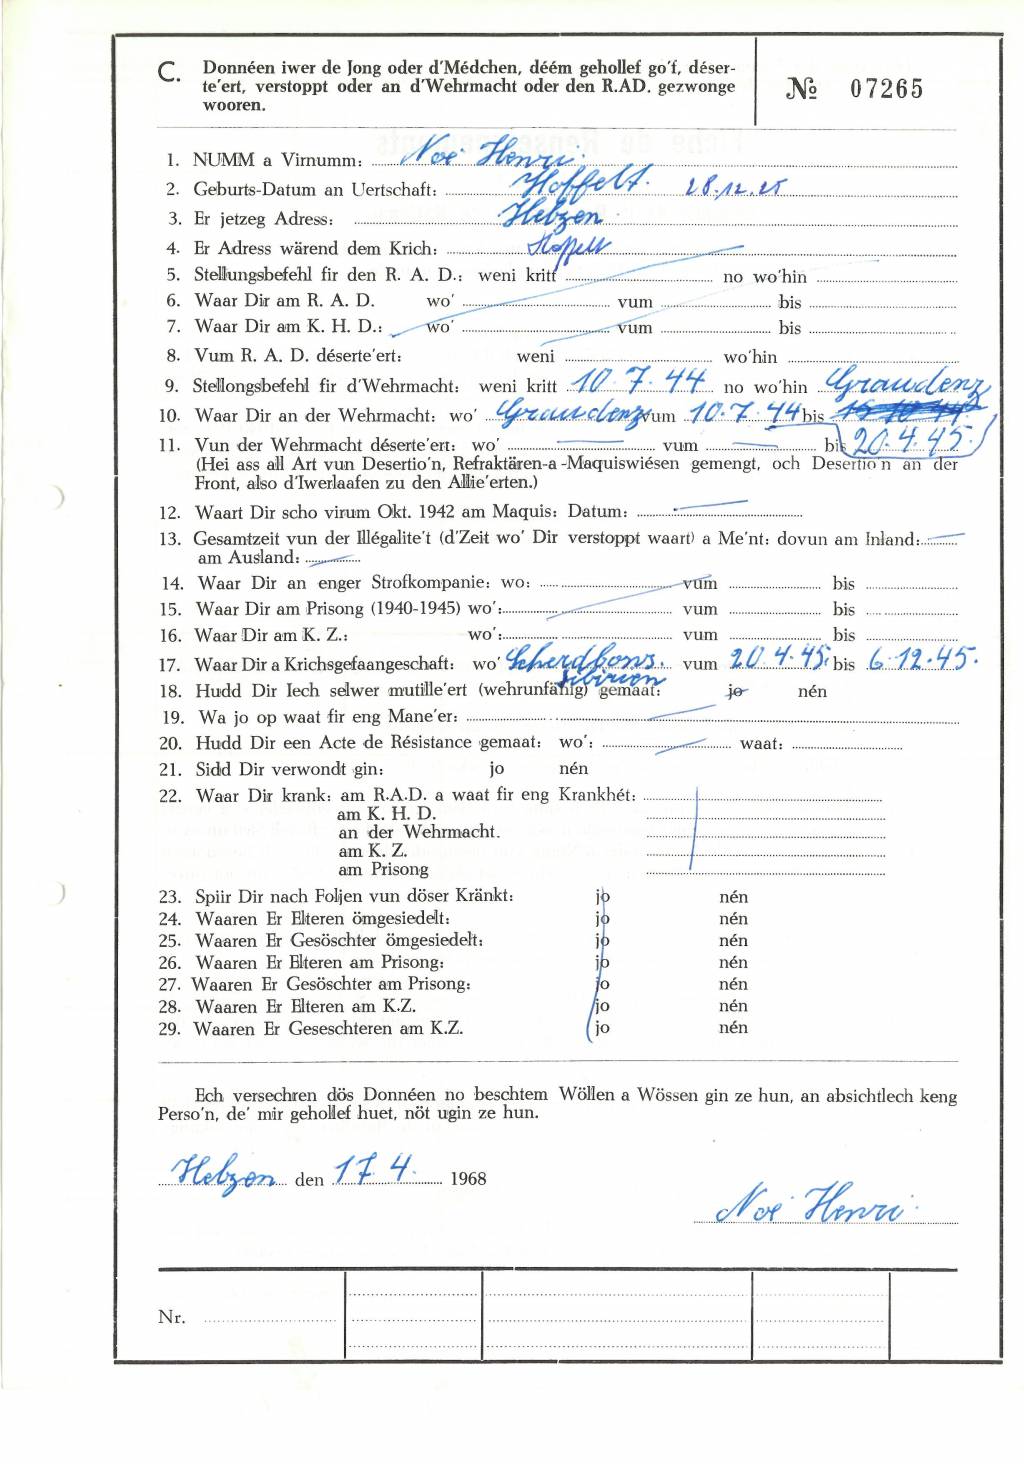 C. Donnéen iwer de Jong oder d'Médchen, déém gehollef go'f, déser-
te'ert, verstoppt oder an d'Wehrmacht oder den R.AD. gezwonge
wooren.
№ 07265
1. NUMM a Virnumm: Noé Henri
2. Geburts-Datum an Uertschaft: Hoffelt. 28.12.25
3. Er jetzeg Adress: Helzen
4. Er Adress wärend dem Krich: Hoffelt
5. Stellungsbefehl fir den R. A. D.: weni kritt no wo'hin
6. Waar Dir am R. A. D. wo' vum bis
7. Waar Dir am K. H. D.: wo' vum bis
8. Vum R. A. D. déserte'ert: weni wo'hin
9. Stellongsbefehl fir d'Wehrmacht: weni kritt 10.7.44 no wo'hin Graudenz
10. Waar Dir an der Wehrmacht: wo' Graudenz vum 10.7.44 bis 15.10.44
11. Vun der Wehrmacht déserte'ert: wo' vum bis 20.4.45.
(Hei ass all Art vun Desertio'n, Refraktären-a-Maquiswiésen gemengt, och Desertio'n an der
Front, also d'Iwerlaafen zu den Allie'erten.)
12. Waart Dir scho virum Okt. 1942 am Maquis: Datum:
13. Gesamtzeit vun der Illégalite't (d'Zeit wo' Dir verstoppt waart) a Me'nt: dovun am Inland:
am Ausland:
14. Waar Dir an enger Strofkompanie: wo: vum bis
15. Waar Dir am Prisong (1940-1945) wo': vum bis
16. Waar Dir am K. Z.: wo': vum bis
17. Waar Dir a Krichsgefaangeschaft: wo' Scherdbons. vum 20.4.45. bis 6.12.45.
Sibirien
18. Hudd Dir Iech selwer mutille'ert (wehrunfähig) gemaat: jo nén
19. Wa jo op waat fir eng Mane'er:
20. Hudd Dir een Acte de Résistance gemaat: wo': waat:
21. Sidd Dir verwondt gin: jo nén
22. Waar Dir krank: am R.A.D. a waat fir eng Krankhét:
am K. H. D.
an der Wehrmacht.
am K. Z.
am Prisong
23. Spiir Dir nach Foljen vun döser Kränkt: jo nén
24. Waaren Er Elteren ömgesiedelt: jo nén
25. Waaren Er Gesöschter ömgesiedelt: jo nén
26. Waaren Er Elteren am Prisong: jo nén
27. Waaren Er Gesöschter am Prisong: jo nén
28. Waaren Er Elteren am K.Z. jo nén
29. Waaren Er Geseschteren am K.Z. jo nén
Ech versechren dös Donnéen no beschtem Wöllen a Wössen gin ze hun, an absichtlech keng
Perso'n, de' mir gehollef huet, nöt ugin ze hun.
Helzen den 17.4. 1968
Noé Henri
Nr.